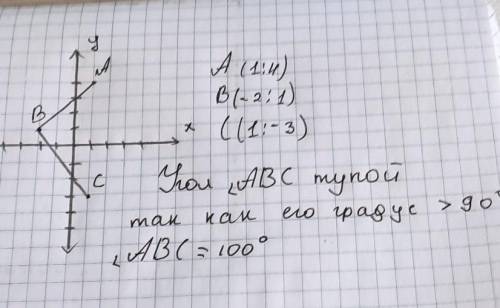 y
A
B
x
C
A (1:4)
B(-2:1)
C(1:-3)
Угол ∠ABC тупой
так как его градус > 90°
∠ABC = 100°